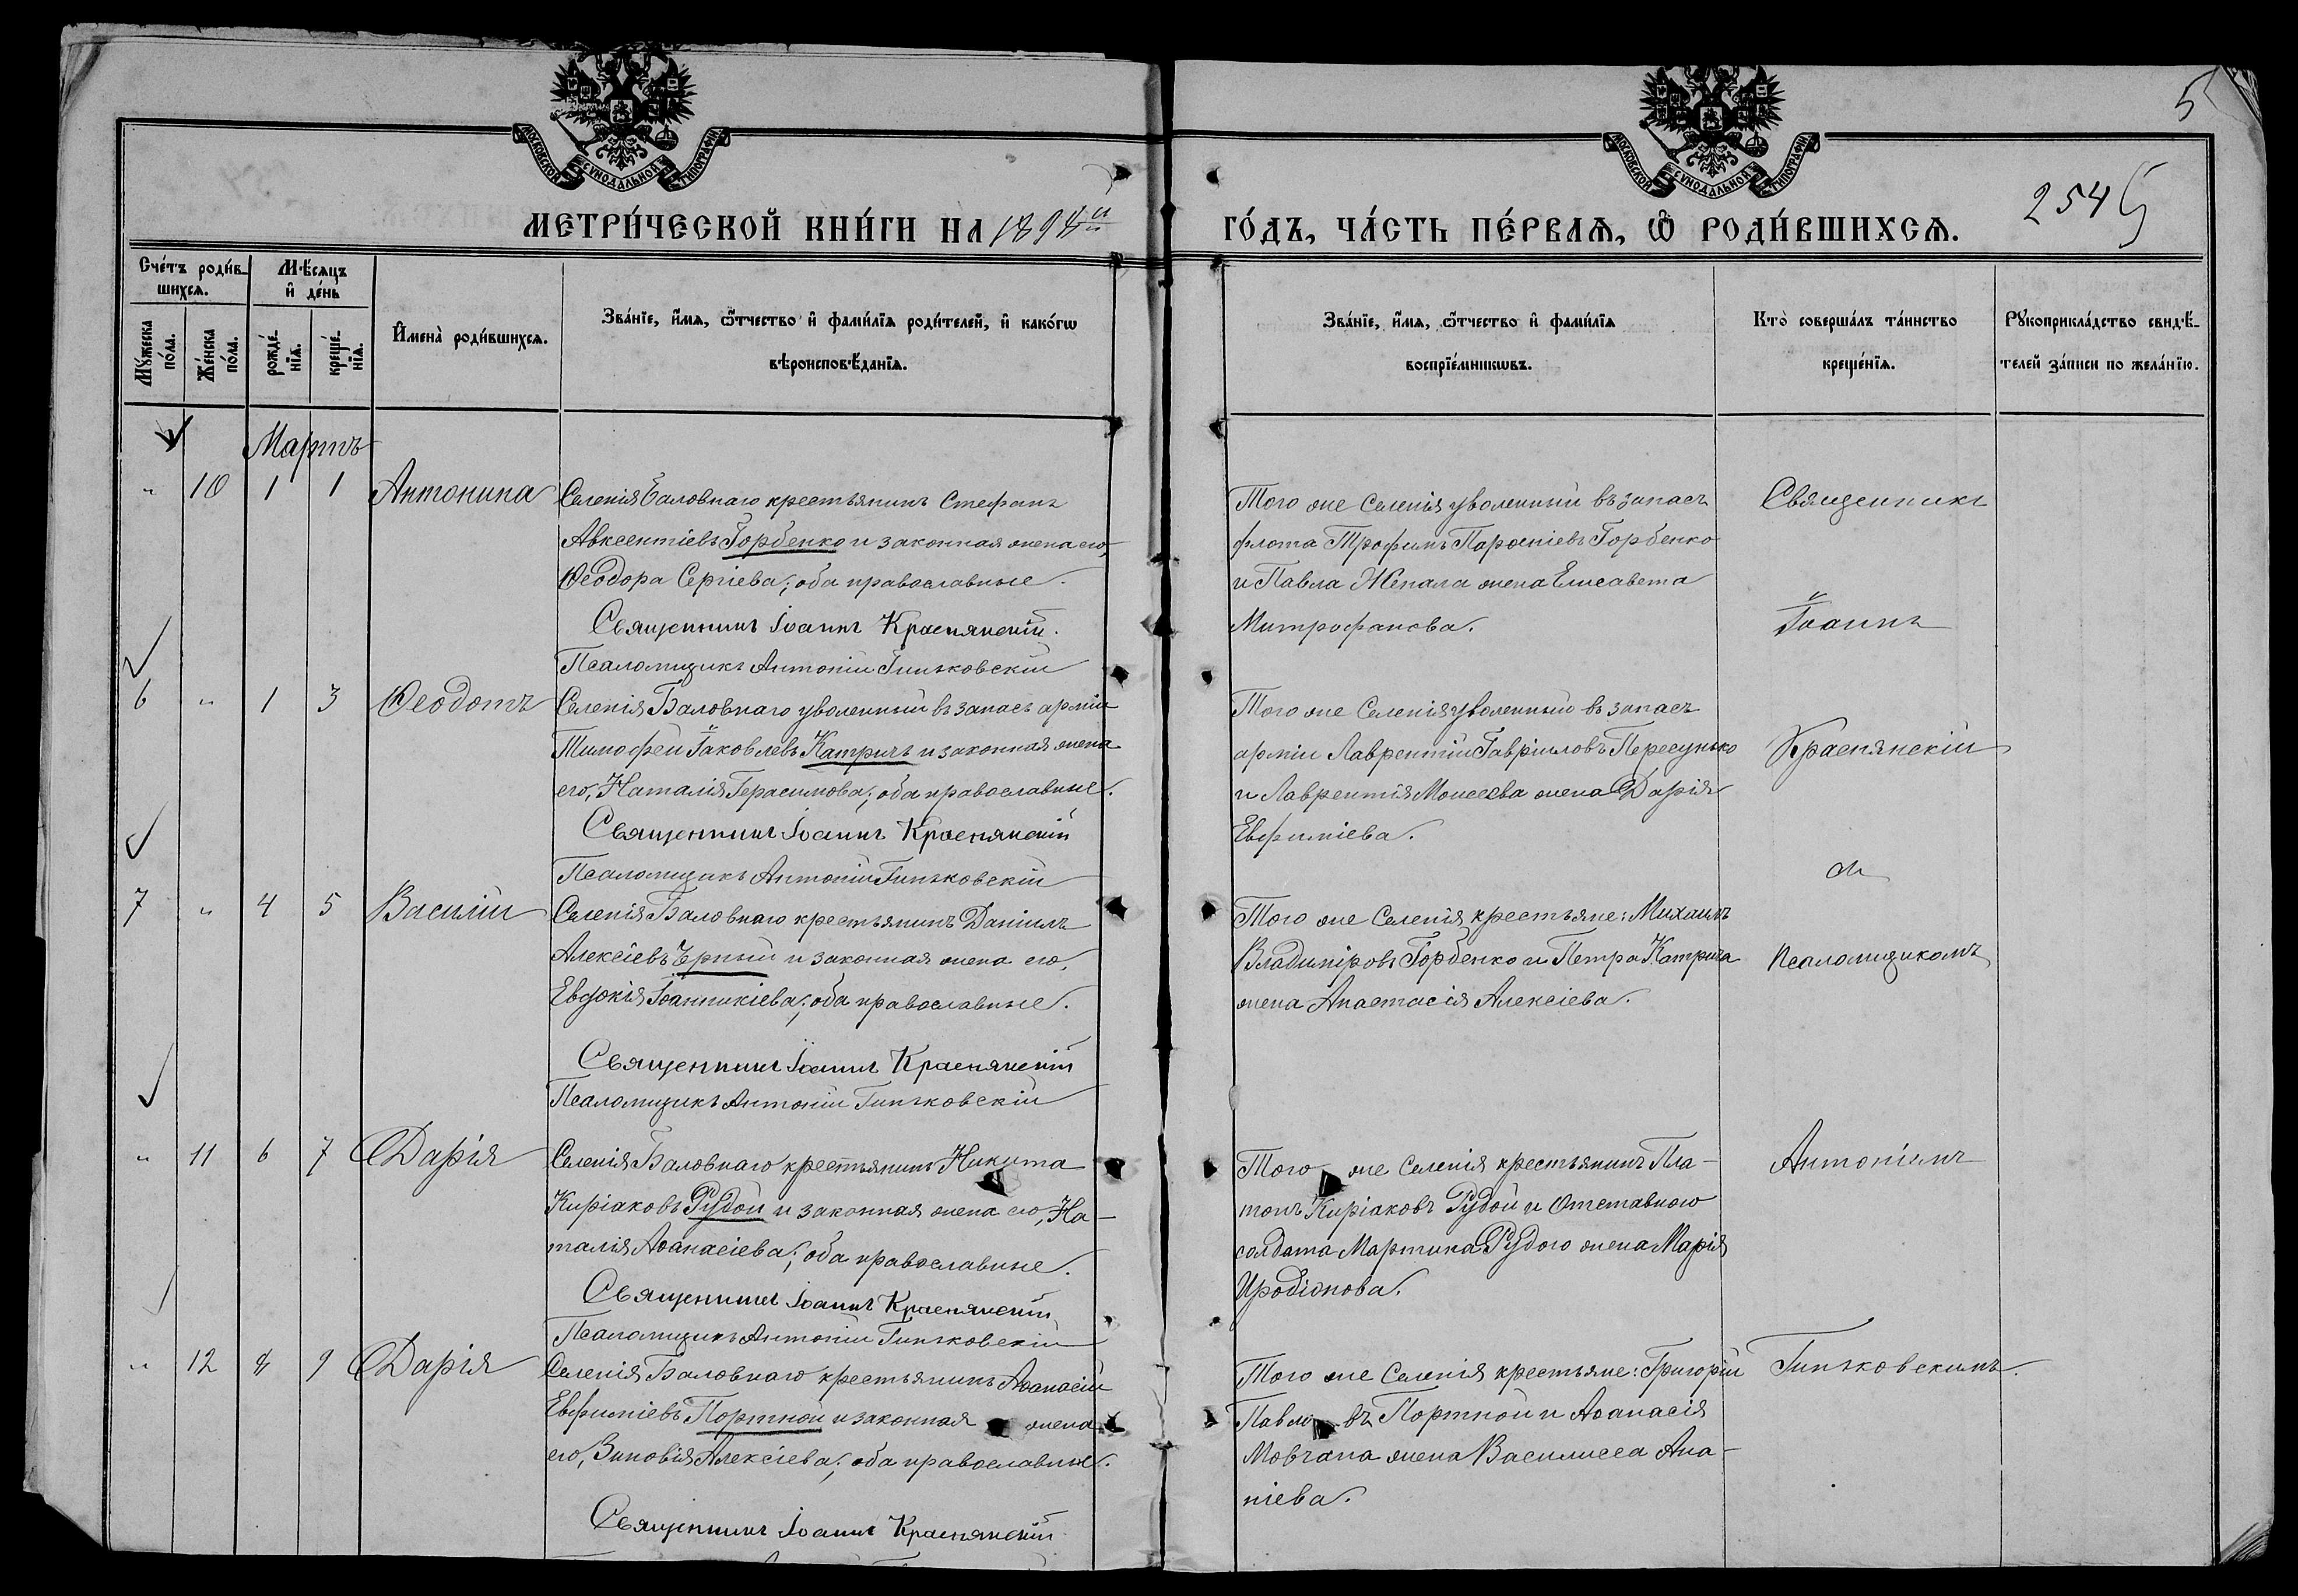 МОСКОВСКОЙ СѴНОДАЛЬНОЙ ТИПОГРАФІИ
МОСКОВСКОЙ СѴНОДАЛЬНОЙ ТИПОГРАФІИ
5
254
МЕТРИ́ЧЕСКОЙ КНИ́ГИ НА 1894й
ГО́ДЪ, ЧА́СТЬ ПЕ́РВАѦ, Ѿ РОДИ́ВШИХСѦ.
Сче́тъ роди́в-
шихсѧ.
Мѣ́сѧцъ
и҆ де́нь
Мꙋ́жеска по́ла.
Же́нска по́ла.
рожде́-нїѧ.
креще́-нїѧ.
И҆мена̀ роди́вшихсѧ.
Зва́нїе, и҆́мѧ, ѻ҆́тчество и҆ фами́лїѧ роди́телей, и҆ како́гѡ
вѣроисповѣ́данїѧ.
Зва́нїе, и҆́мѧ, ѻ҆́тчество и҆ фами́лїѧ
воспрїе́мникѡвъ.
Кто̀ соверша́лъ та́инство
креще́нїѧ.
Рꙋкоприкла́дство свидѣ́-
телей за́писи по жела́нїю.
Мартъ
" 10 1 1 Антонина
Селенія Баловнаго крестьянинъ Стефанъ
Авксентіевъ Горбенко и законная жена его,
Ѳеодора Сергіева; оба православные.
Священникъ Іоаннъ Краснянскій.
Псаломщикъ Антоній Гиньковскій
Того же Селенія уволенный въ запасъ
флота Трофимъ Парѳеніевъ Горбенко
и Павла Жепала жена Елисавета
Митрофанова.
Священникъ
Іоаннъ
6 " 1 3 Ѳеодотъ
Селенія Баловнаго уволенный въ запасъ арміи
Тимофей Іаковлевъ Катричъ и законная жена
его, Наталія Герасимова; оба православные.
Священникъ Іоаннъ Краснянскій
Псаломщикъ Антоній Гиньковскій
Того же Селенія уволенный въ запасъ
арміи Лаврентій Гавріиловъ Пересунько
и Лаврентія Моисеева жена Дарія
Евфиміева.
Краснянскій
съ
7 " 4 5 Василій
Селенія Баловнаго крестьянинъ Даніилъ
Алексіевъ Чрный и законная жена его,
Евдокія Іоанникіева; оба православные.
Священникъ Іоаннъ Краснянскій
Псаломщикъ Антоній Гиньковскій
Того же Селенія крестьяне: Михаилъ
Владиміровъ Горбенко и Петра Катрича
жена Анастасія Алексіева.
псаломщикомъ
" 11 6 7 Дарія
Селенія Баловнаго крестьянинъ Никита
Киріаковъ Рудой и законная жена его, На-
талія Аѳанасіева; оба православные.
Священникъ Іоаннъ Краснянскій
Псаломщикъ Антоній Гиньковскій
Того же Селенія крестьянинъ Пла-
тонъ Киріаковъ Рудой и отставного
солдата Мартина Рудого жена Марія
Иродіонова.
Антоніемъ
" 12 8 9 Дарія
Селенія Баловнаго крестьянинъ Аѳанасій
Евфиміевъ Портной и законная жена
его, Зиновія Алексіева; оба православные.
Священникъ Іоаннъ Краснянскій
Того же Селенія крестьяне: Григорій
Павловъ Портной и Аѳанасія
Мовчана жена Василисса Ана-
ніева.
Гиньковскимъ.